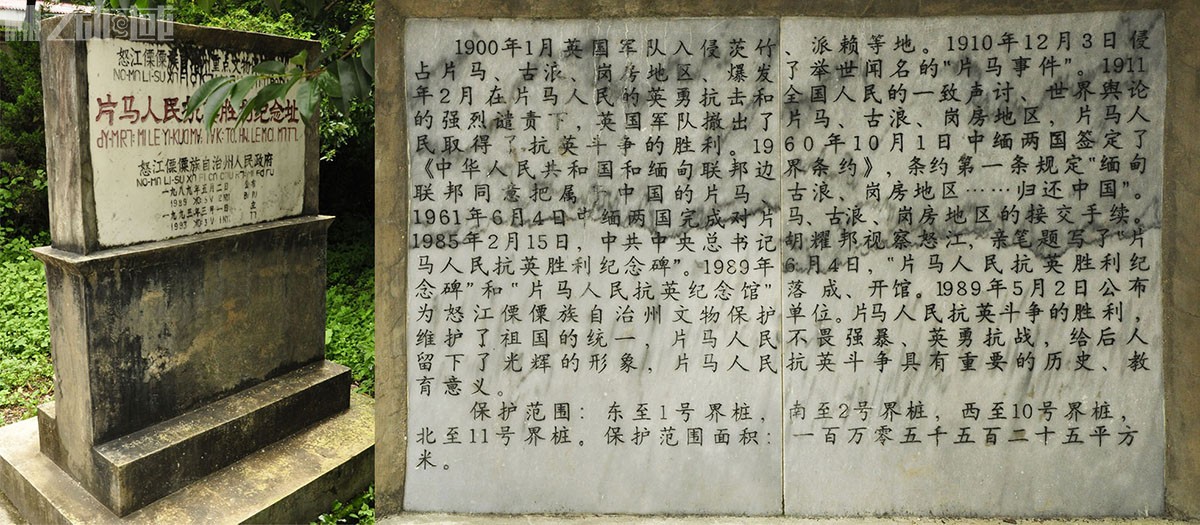 怒江傈僳族自治州重点文物
片马人民抗英胜利纪念址
怒江傈僳族自治州人民政府
一九八九年五月二日 公布
一九九三年三月一日 立
1900年1月英国军队入侵茨竹、派赖等地。1910年12月3日侵
占片马、古浪、岗房地区、爆发了举世闻名的"片马事件"。1911
年2月在片马人民的英勇抗击和全国人民的一致声讨、世界舆论
的强烈谴责下，英国军队撤出了片马、古浪、岗房地区，片马人
民取得了抗英斗争的胜利。1960年10月1日中缅两国签定了
《中华人民共和国和缅甸联邦边界条约》，条约第一条规定"缅甸
联邦同意把属于中国的片马、古浪、岗房地区……归还中国"。
1961年6月4日中缅两国完成对片马、古浪、岗房地区的接交手续。
1985年2月15日，中共中央总书记胡耀邦视察怒江，亲笔题写了"片
马人民抗英胜利纪念碑"。1989年6月4日，"片马人民抗英胜利纪
念碑"和"片马人民抗英纪念馆"落成、开馆。1989年5月2日公布
为怒江傈僳族自治州文物保护单位。片马人民抗英斗争的胜利，
维护了祖国的统一，片马人民不畏强暴、英勇抗战，给后人
留下了光辉的形象，片马人民抗英斗争具有重要的历史、教
育意义。
保护范围：东至1号界桩，南至2号界桩，西至10号界桩，
北至11号界桩。保护范围面积：一百万零五千五百二十五平方
米。